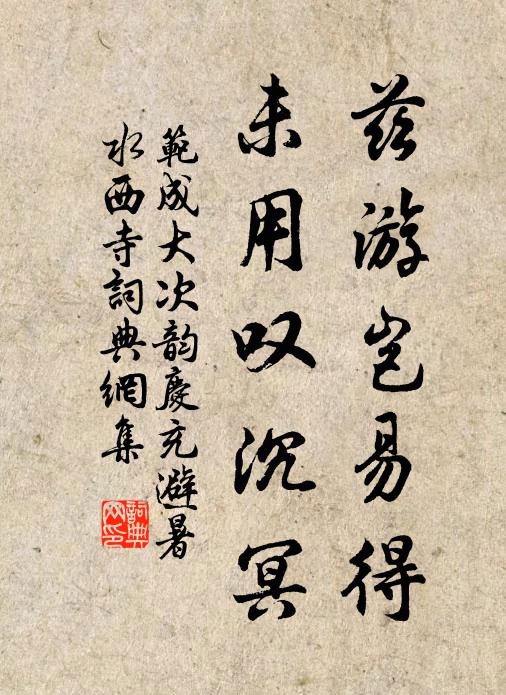 兹游岂易得
未用叹沉冥
範成大次韵慶充避暑
水西寺詞典網集
詞典
网印